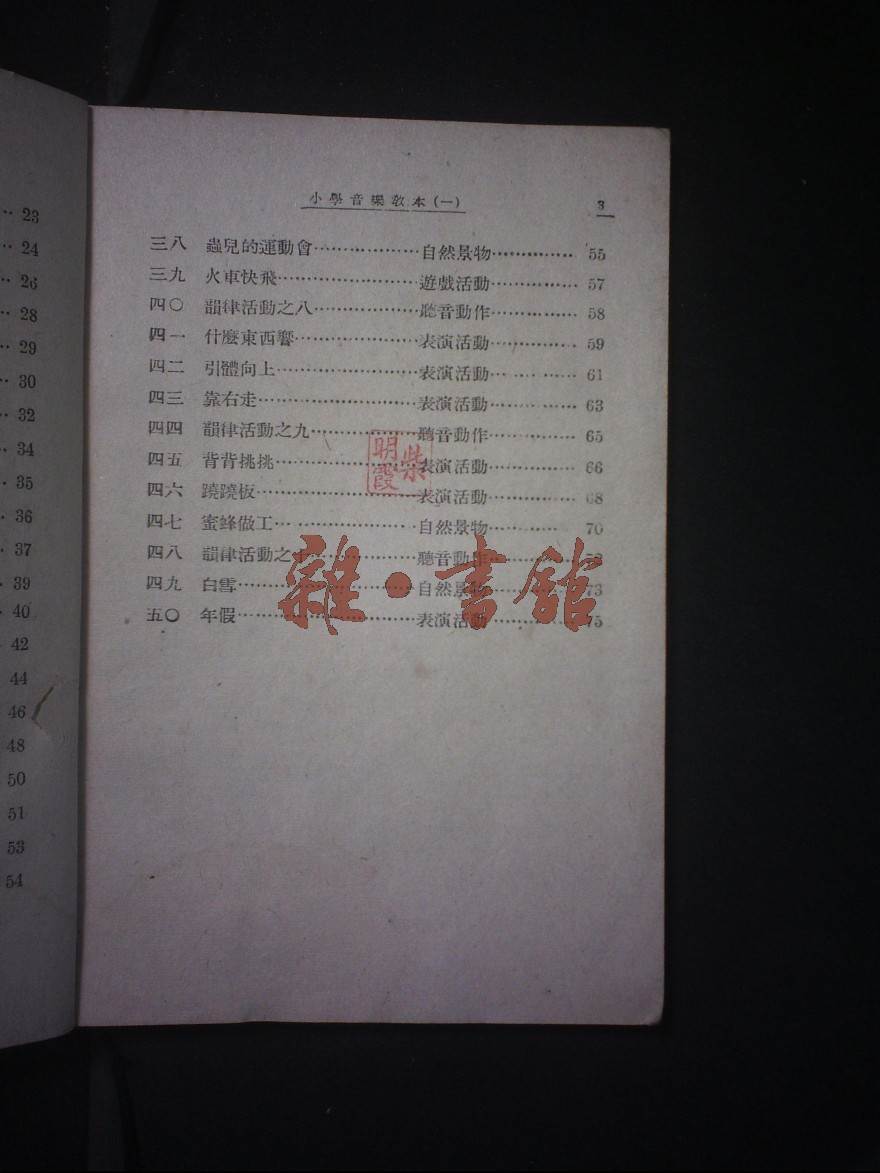 23
24
26
28
29
30
32
34
35
36
37
39
40
42
44
46
48
50
51
53
54
小學音樂教本(一) 3
三八 蟲兒的運動會……………… 自然景物…………… 55
三九 火車快飛……………………遊戲活動…………… 57
四〇 韻律活動之八………………聽音動作…………… 58
四一 什麼東西響…………………表演活動…………… 59
四二 引體向上……………………表演活動…………… 61
四三 靠右走………………………表演活動…………… 63
四四 韻律活動之九………………聽音動作…………… 65
四五 背背挑挑……………………表演活動…………… 66
四六 蹺蹺板………………………表演活動…………… 68
四七 蜜蜂做工……………………自然景物………… 70
四八 韻律活動之十………………聽音動作……………
四九 白雪…………………………自然景物…………… 73
五〇 年假…………………………表演活動…………… 75
柴明霞
雜·書館